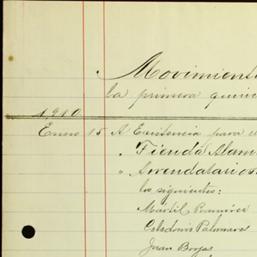 Movimiento
la primera quin
1910
Enero 15 A Existencia para e
" Tienda Alam
" Arrendatarios
los siguientes:
Ramirez
Celedonio Palomares
Juan Borjas